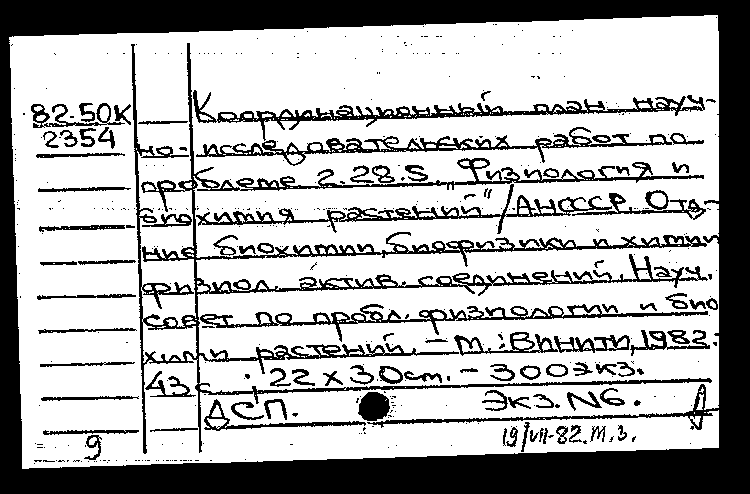 82.50К Координационный план науч-
2354 но-исследовательских работ по
проблеме 2.28.5. "Физиология и
биохимия растений" / АНСССР. Отд-
ние биохимии, биофизики и химии
физиол. актив. соединений. Науч.
совет по пробл. физиологии и био
химии растений. – М.: Винити, 1982.
43с.; 22 х 30 см. – 300 экз.
ДСП. Экз. N6.
9 19/VII-82. М.З.